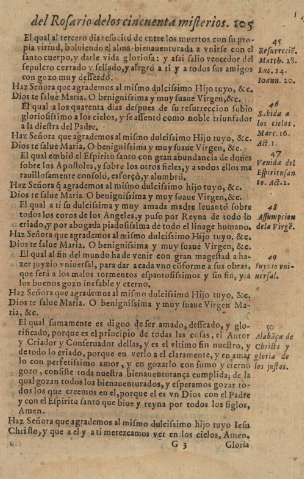 del Rosario de los cincuenta misterios. 105
El qual al tercero dia resucitó de entre los muertos con su pro
pia virtud, boluiendo el alma bienauenturada a vnirse con el
santo cuerpo, y darle vida gloriosa: y assi salio vencedor del
sepulcro cerrado y sellado, y alegró a ti y a todos sus amigos
con gozo muy desseado.
45
Resurrecciō.
Matth. 28.
Luc. 24.
Ioann. 20.
Haz Señora que agrademos al mismo dulcissimo Hijo tuyo, &c.
Dios te salue Maria. O benignissima y muy suaue Virgen, &c.
El qual a los quarenta dias despues de su resurreccion subió
gloriosissimo a los cielos, y se assentó como noble triunfador
a la diestra del Padre.
46
Subida a
los cielos.
Marc. 16.
Act. 1.
Haz Señora que agrademos al mismo dulcissimo Hijo tuyo, &c.
Dios te salue Maria. O benignissima y muy suaue Virgen, &c.
El qual embió el Espiritu santo con gran abundancia de dones
sobre los Apostoles, y sobre los otros fieles, y a todos ellos ma
rauillosamente consoló, esforçó, y alumbró.
47
Venida del
Espiritu san
to. Act. 2.
Haz Señora q̃ agrademos al mismo dulcissimo hijo tuyo, &c.
Dios te salue Maria. O benignissima y muy suaue Virgen, &c.
El qual a ti su dulcissima y muy amada madre leuantó sobre
todos los coros de los Angeles, y puso por Reyna de todo lo
criado, y por abogada piadosissima de todo el linage humano.
48
Assumpcion
de la Virgẽ.
Haz Señora que agrademos al mismo dulcissimo Hijo tuyo, &c.
Dios te salue Maria. O benignissima y muy suaue Virgen, &c.
El qual al fin del mundo ha de venir con gran magestad a ha-
zer juyzio vniuersal, para dar a cada vno cōforme a sus obras,
que será a los malos tormentos espantosissimos y sin fin, y a
los buenos gozo inefable y eterno.
49
Iuyzio vni-
uersal.
Haz Señora que agrademos al mismo dulcissimo Hijo tuyo, &c.
Dios te salue Maria. O benignissima y muy suaue Virgen Ma-
ria, &c.
El qual sumamente es digno de ser amado, desseado, y glo-
rificado, porque es el principio de todas las cosas, el Autor
y Criador y Conseruador dellas, y es el vltimo fin nuestro, y
de todo lo criado, porque en verlo a el claramente, y en amar
lo con perfectissimo amor, y en gozarlo con sumo y eterno
gozo, consiste toda nuestra bienauenturança cumplida; de la
qual gozan todos los bienauenturados, y esperamos gozar to-
dos los que creemos en el, porque el es vn Dios con el Padre
y con el Espiritu santo que biue y reyna por todos los siglos,
Amen.
50
Alabāça de
Christo y
gloria de
los justos.
Haz Señora que agrademos al mismo dulcissimo hijo tuyo Iesu
Christo, y que a el y a ti merezcamos ver en los cielos, Amen.
G 3
Gloria